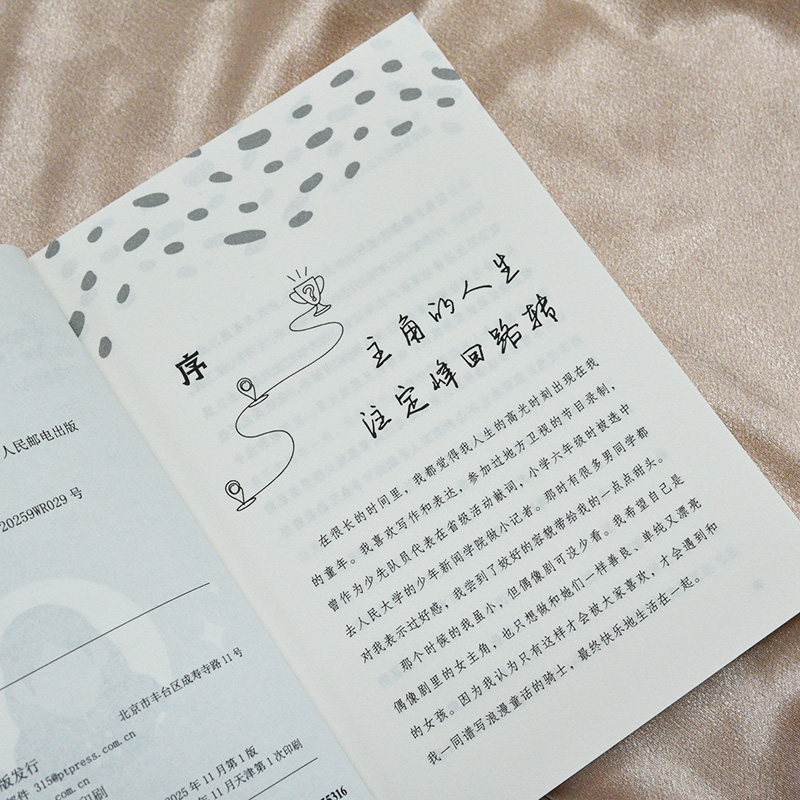 人民邮电出版
20259WR029 号
北京市丰台区成寿寺路11号
版发行
邮件 315@ptpress.com.cn
.com.cn
印刷
2025 年 11 月第 1 版
年 11 月天津第 1 次印刷
55316
序
?
主角的人生
注定峰回路转
在很长的时间里，我都觉得我人生的高光时刻出现在我
的童年。我喜欢写作和表达，参加过地方卫视的节目录制，
曾作为少先队员代表在省级活动献词，小学六年级时被选中
去人民大学的少年新闻学院做小记者。那时有很多男同学都
对我表示过好感，我尝到了姣好的容貌带给我的一点点甜头。
那个时候的我虽小，但偶像剧可没少看。我希望自己是
偶像剧里的女主角，也只想做和她们一样善良、单纯又漂亮
的女孩。因为我认为只有这样才会被大家喜欢，才会遇到和
我一同谱写浪漫童话的骑士，最终快乐地生活在一起。